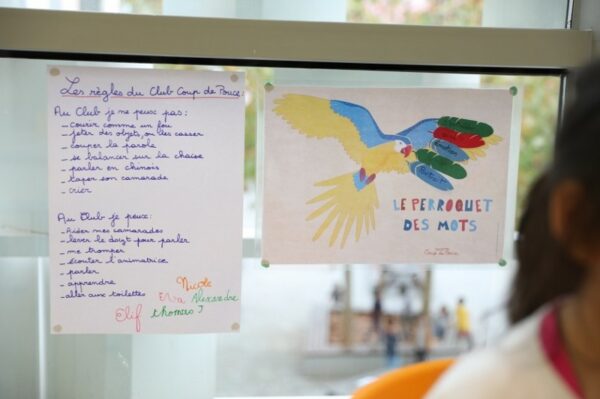 Les règles du Club Coup de Pouce:
Au Club je ne peux pas:
_ courir comme un fou
_ jeter des objets, ou les casser
_ couper la parole
_ se balancer sur la chaise
_ parler en chinois
_ taper son camarade
_ crier
Au Club je peux:
_ aider mes camarades
_ lever le doigt pour parler
_ me tromper
_ écouter l'animatrice
_ parler
_ apprendre
_ aller aux toilettes
Nicole
Elsa Alexandre
Elif thomas J
LE PERROQUET
DES MOTS
Coup de Pouce